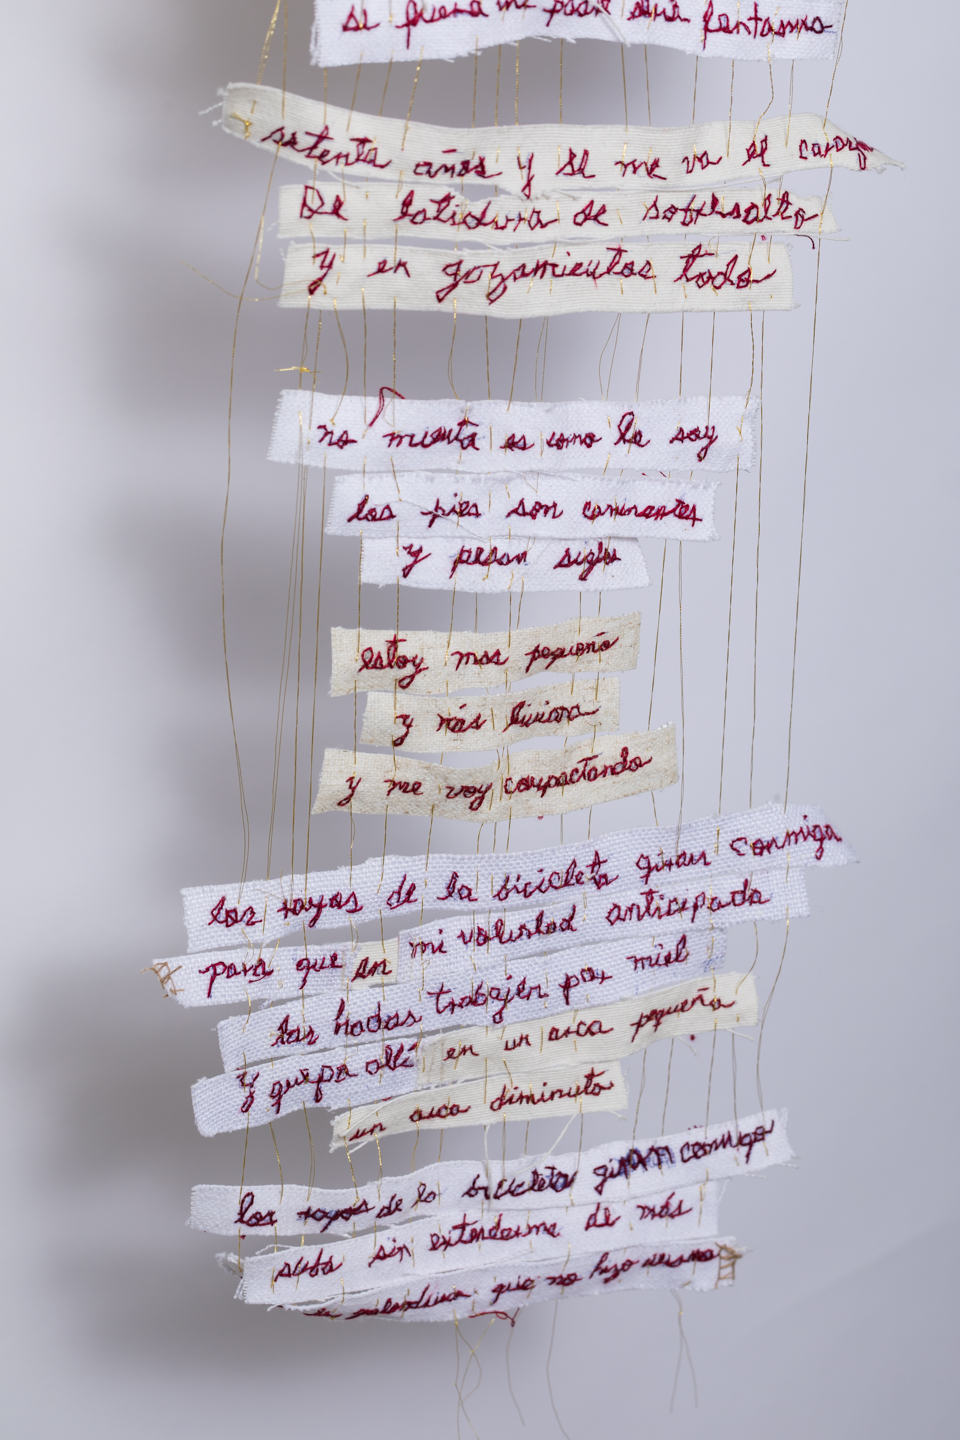 se me padre fantasma
setenta años y se me va el
De latidura de sobresalto
y en gozamientos todo
no mienta es como lo soy
los pies son caminantes
y pesan siglos
estoy mas pequeña
y más liviana
y me voy compactando
los rayos de la bicicleta giran conmigo
para que en mi voluntad anticipada
las hadas trabajen por miel
y quepa allí en un arca pequeña
un arca diminuta
los rayos de la bicicleta giran conmigo
sin extenderme de más
que no hizo